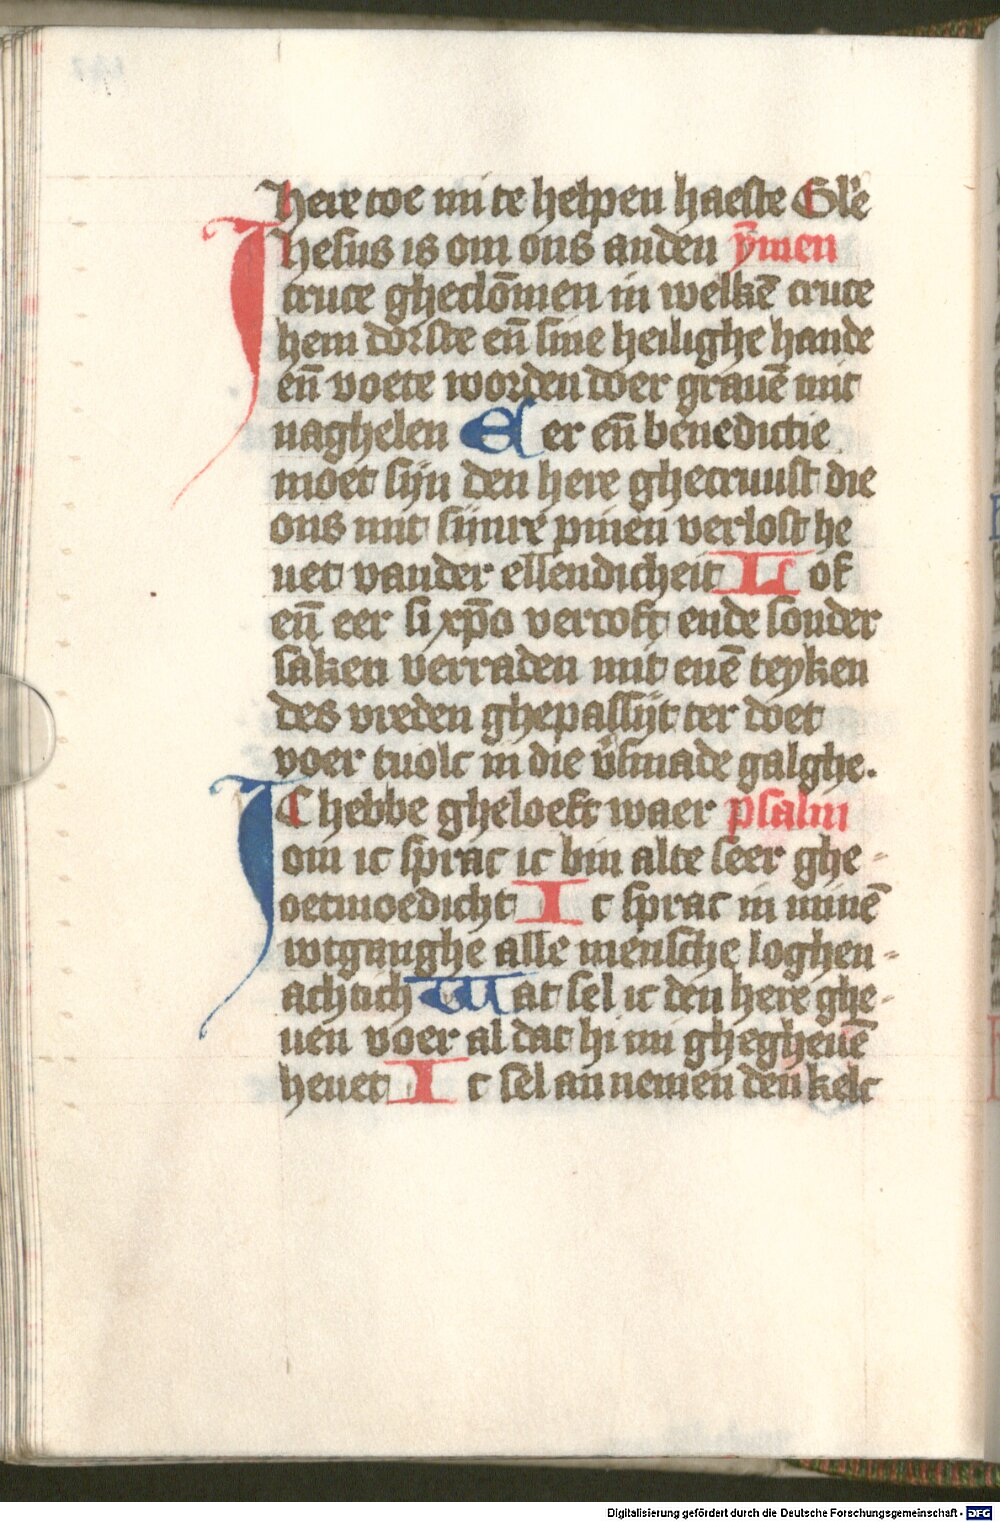 here toe mi te helpen haeste Gl'e
Ihesus is om ons anden ȳmen
cruce gheclōmen in welkē cruce
hem dorste eñ sine heilighe hande
eñ voete worden doer grauē mit
naghelen Eer eñ benedictie
moet sijn den here ghecruust die
ons mit sijnre pinen verlost he
uet vander ellendicheit Lof
eñ eer si xp̄o vercoft ende sonder
saken verraden mit enē teyken
des vreden ghepassijt ter doet
voer tuolc in die v̄smade galghe.
IC hebbe gheloeft waer psalm
om ic sprac ic bin alte seer ghe-
oetmoedicht Ic sprac in minē
wtganghe alle mensche loghen-
achtich Wat sel ic den here ghe-
uen voer al dat hi mi ghegheuē
heuet Ic sel an nemen den kelc
Digitalisierung gefördert durch die Deutsche Forschungsgemeinschaft - DFG